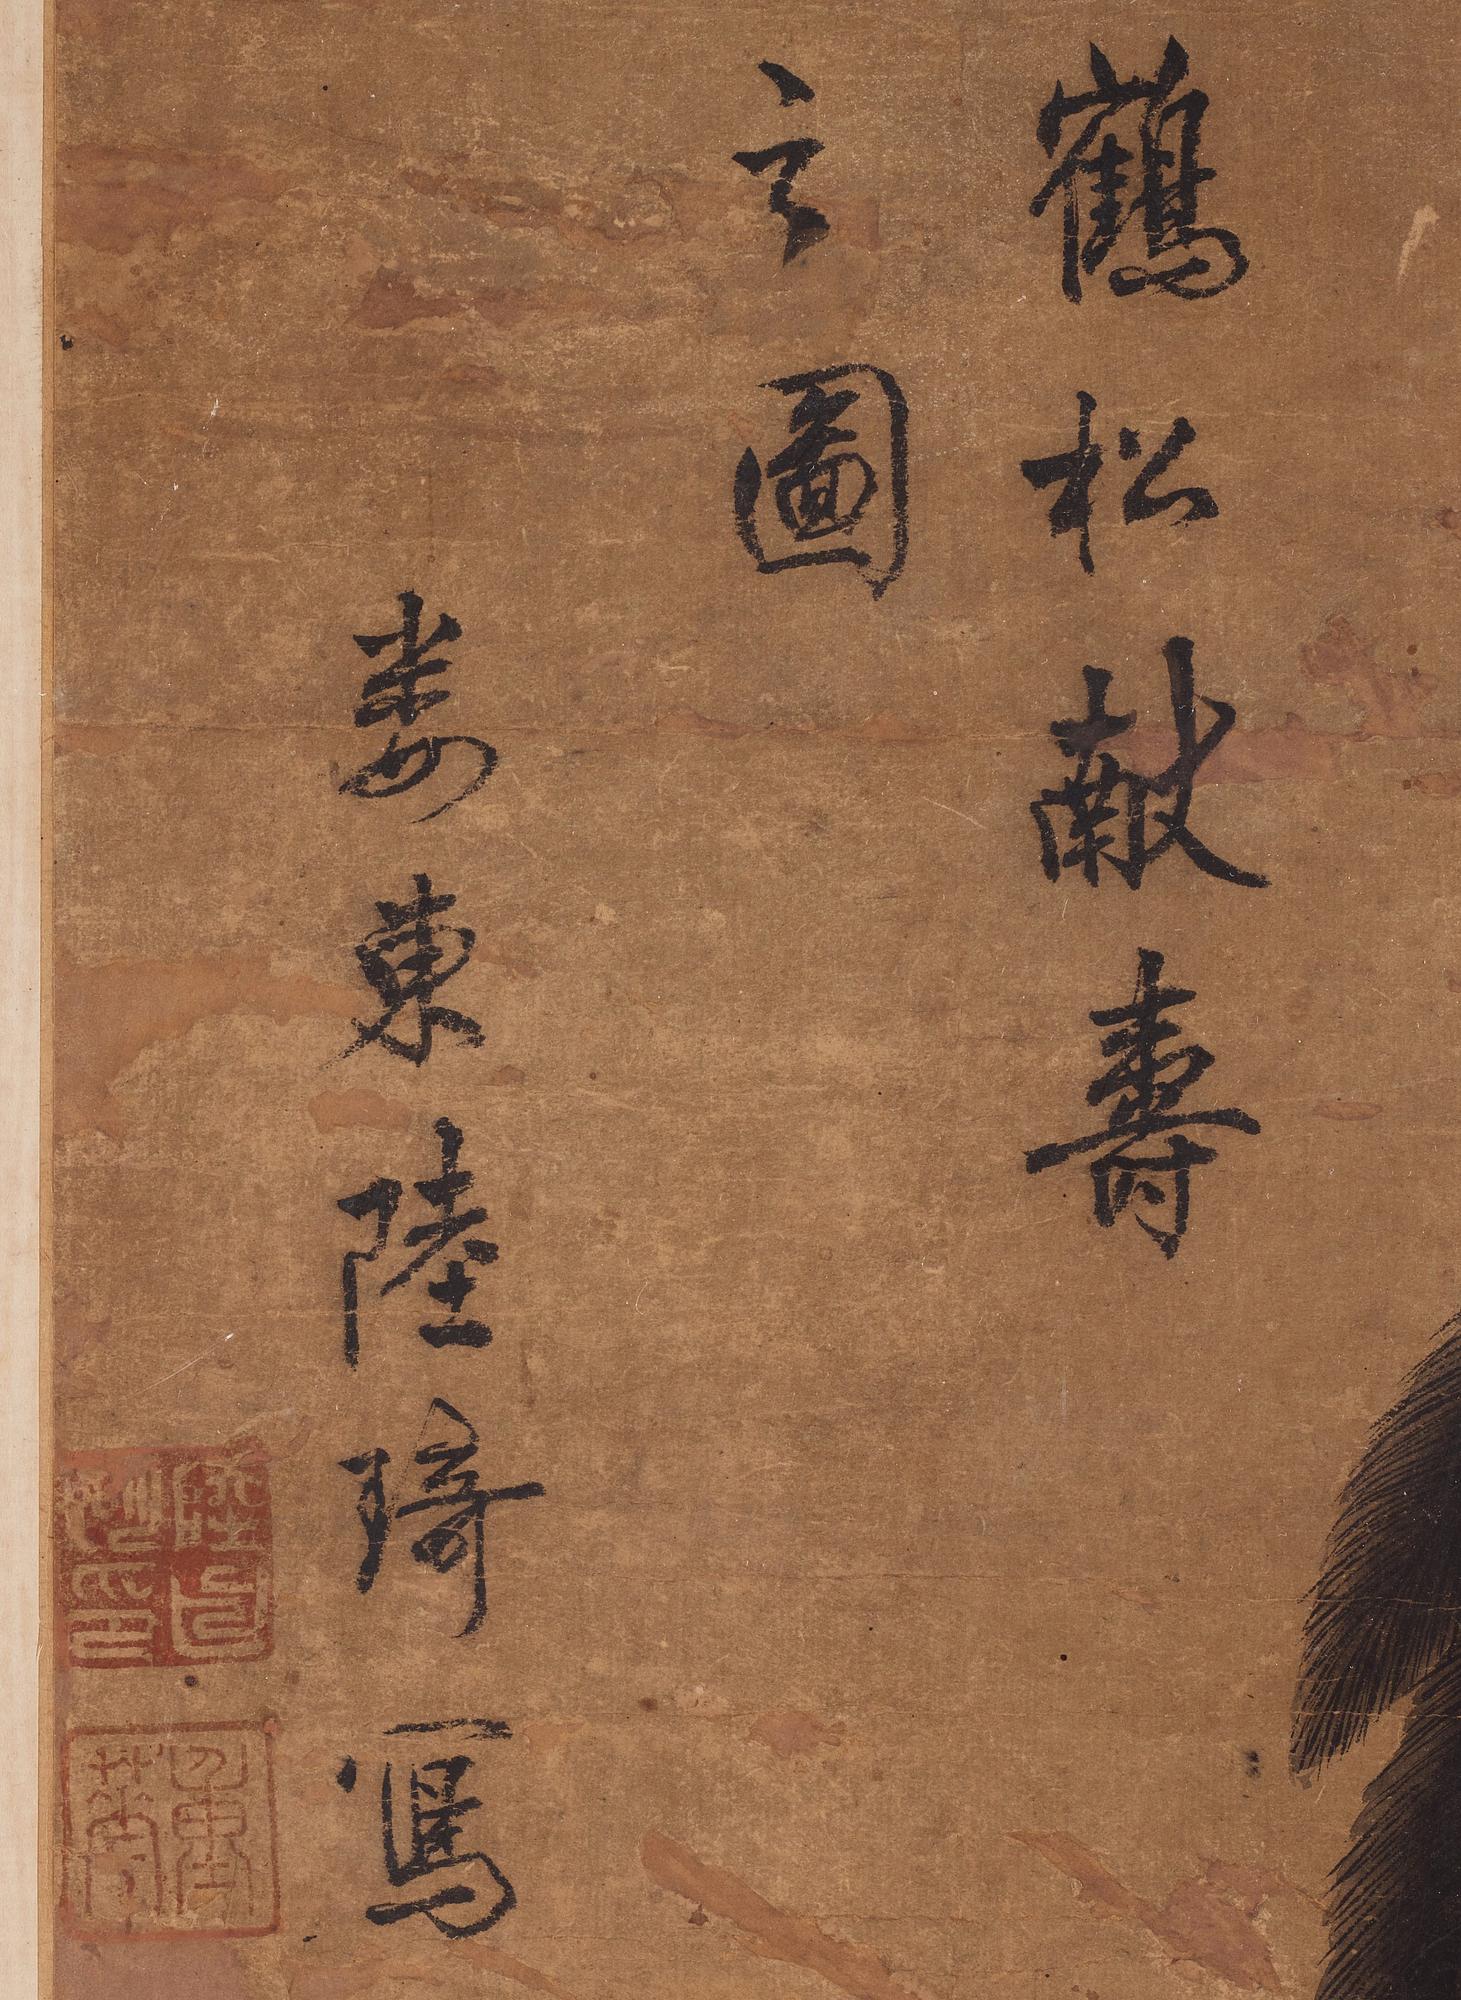 鶴松獻壽
之圖
婁東陸琦寫